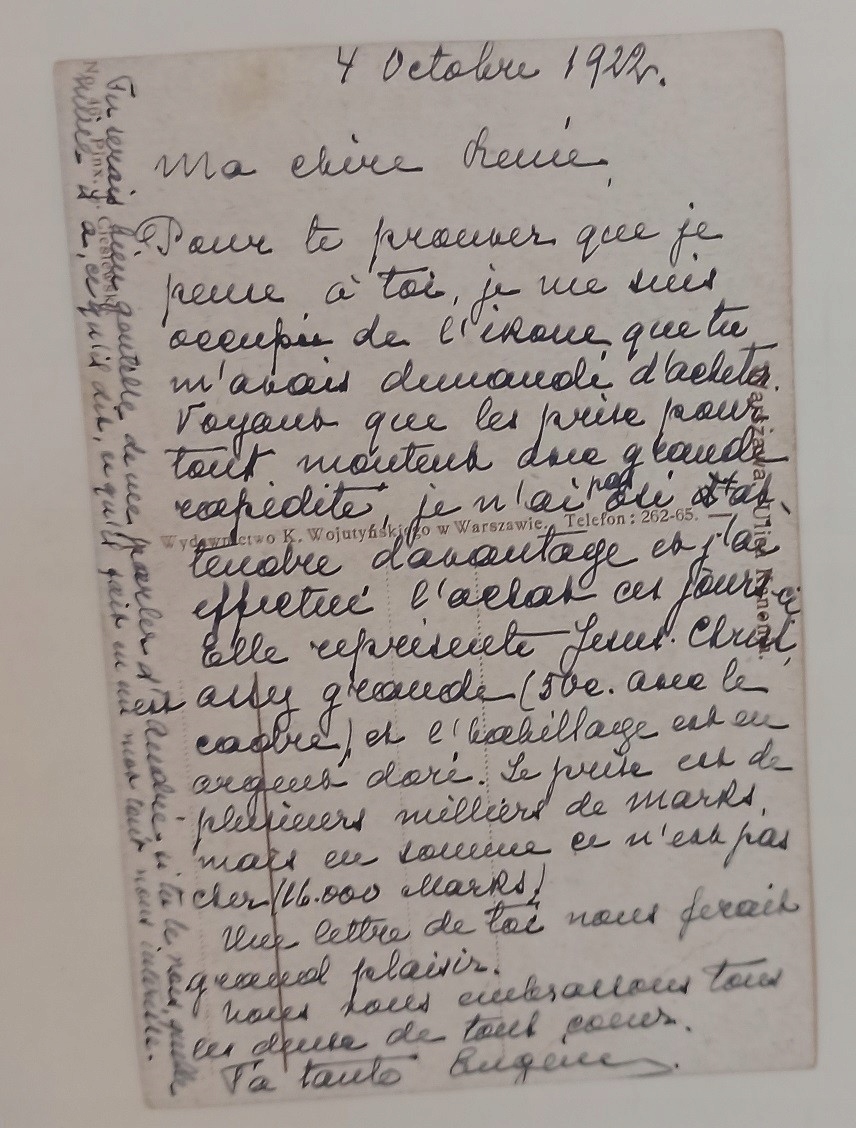 4 Octobre 1922.
Ma chère Renée,
Pour te prouver que je
pense à toi, je me suis
occupée de l'ikone que tu
m'avais demandé d'acheter.
Voyant que les prix pour
tout montent avec grande
rapidité, je n'ai pas osé at-
tendre davantage et j'ai
effectué l'achat ces jours-ci
Elle représente Jesus-Christ,
est assez grande (50c. avec le
cadre) et l'habillage est en
argent doré. Le prix est de
plusieurs milliers de marks,
mais en somme ce n'est pas
cher (16.000 Marks)
Une lettre de toi nous ferait
grand plaisir.
Nous vous embrassons tous
les deux de tout coeur.
Ta tante Eugénie.
Tu serais bien gentille de me parler d'André, si tu le vois, quelle
mine il a, ce qu'il dit, ce qu'il fait en un mot tout nous intéresse.
Wydawnictwo K. Wojutyńskiego w Warszawie. Telefon: 262-65.
Warszawa, Ulica
Pinx. Cieslewski